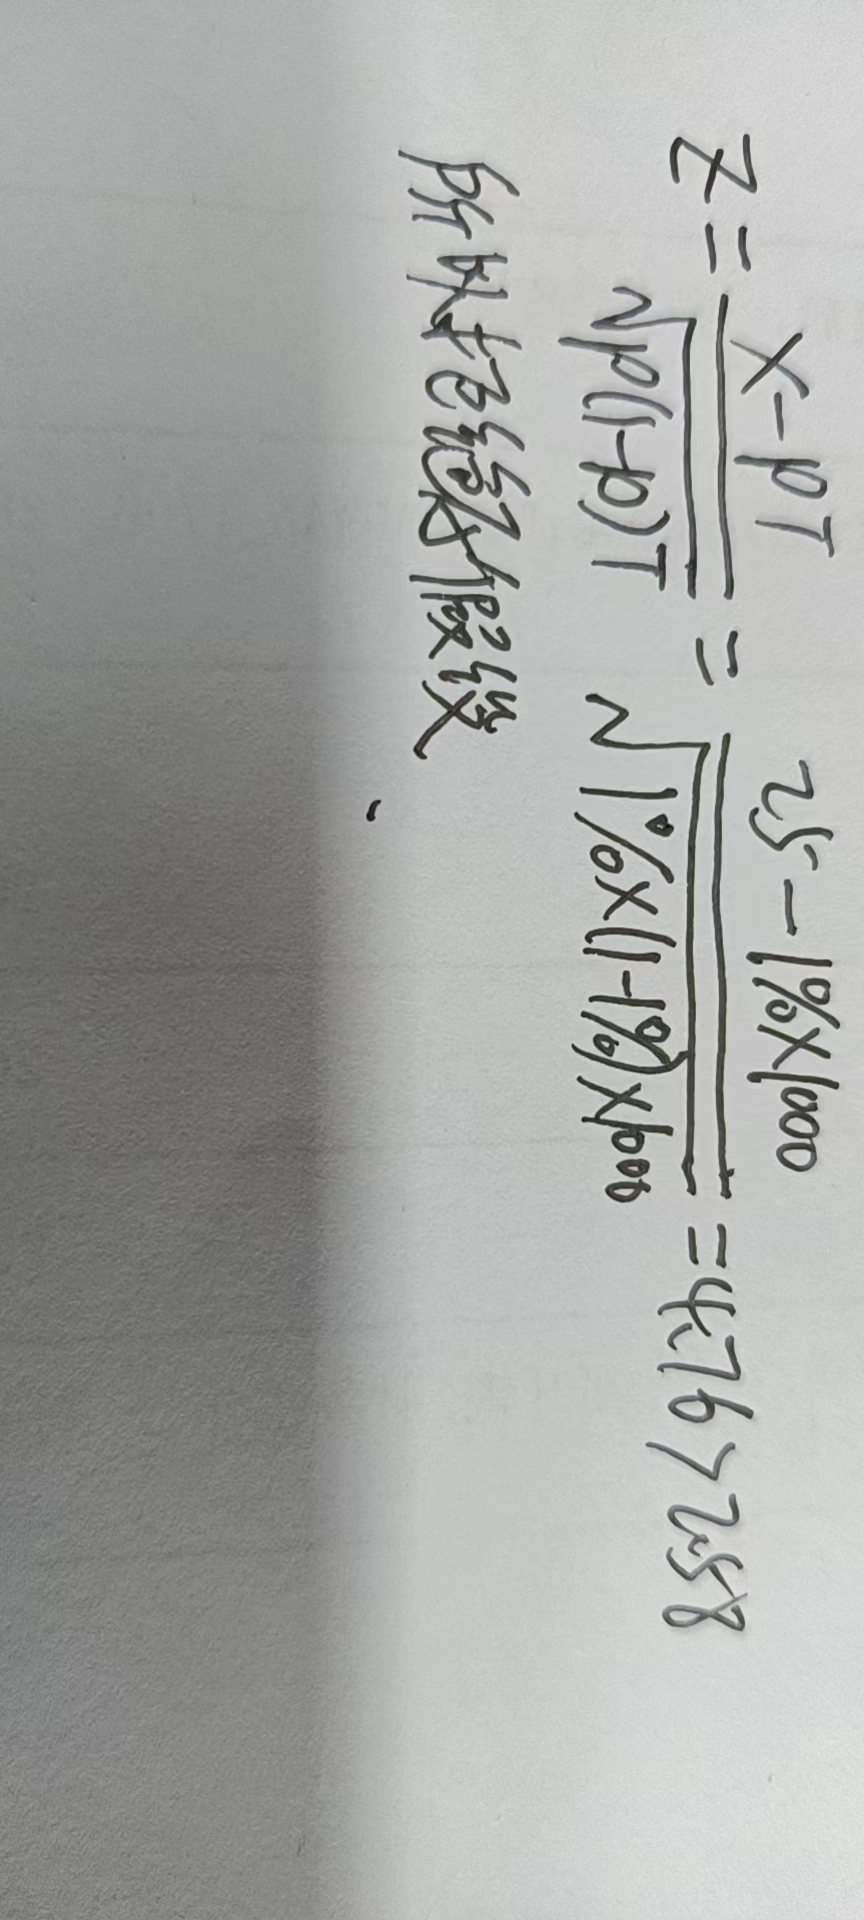 Z = (x-pT)/√(p(1-p)T) = (25-1%×1000)/√(1%×(1-1%)×1000) = 4.76 > 2.58
所以拒绝假设.